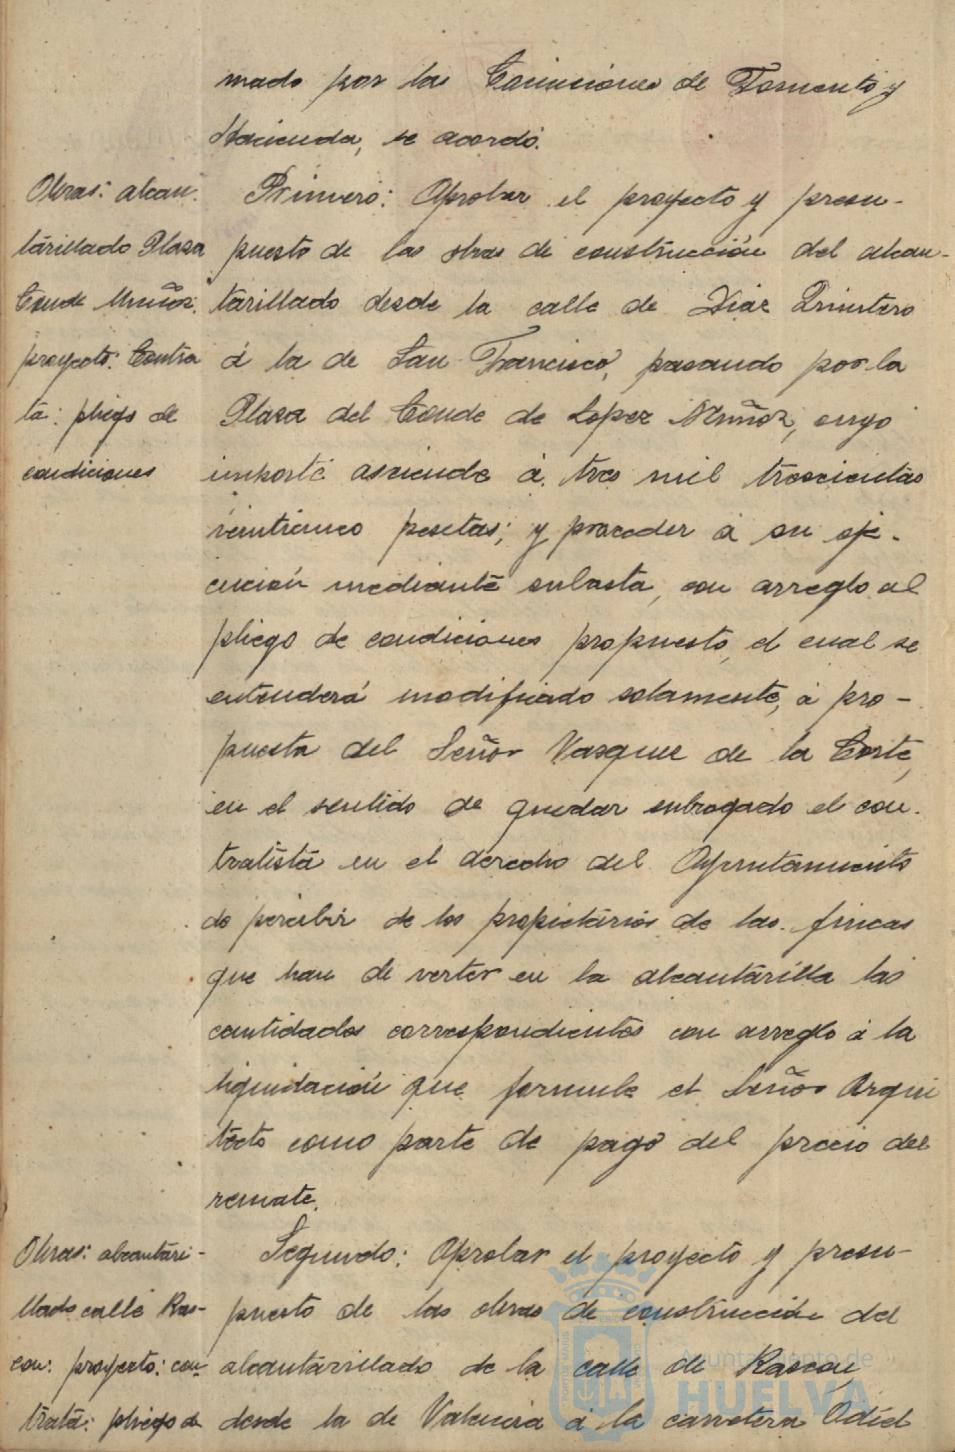 mado por las Comisiones de Fomento y
Hacienda, se acordó.
Obras: alcan-
tarillado Plaza
Conde Muñoz:
proyecto: Contra
ta: pliego de
condiciones
Primero: Aprobar el proyecto y presu-
puesto de las obras de construcción del alcan-
tarillado desde la calle de Díaz Quintero
á la de San Francisco, pasando por la
Plaza del Conde de López Muñoz, cuyo
importe asciende á tres mil trescientas
veinticinco pesetas; y proceder á su eje-
cución mediante subasta, con arreglo al
pliego de condiciones propuesto, el cual se
entenderá modificado solamente, á pro-
puesta del Señor Vazquez de la Corte,
en el sentido de quedar subrogado el con-
tratista en el derecho del Ayuntamiento
de percibir de los propietarios de las fincas
que han de verter en la alcantarilla las
cantidades correspondientes con arreglo á la
liquidación que formule el Señor Arqui
tecto como parte de pago del precio del
remate.
Obras: alcantari-
llado calle Ras-
con: proyecto: con-
trata: pliego de
Segundo: Aprobar el proyecto y presu-
puesto de las obras de construcción del
alcantarillado de la calle de Rascon,
desde la de Valencia á la carretera Odiel
Ayuntamiento de
HUELVA